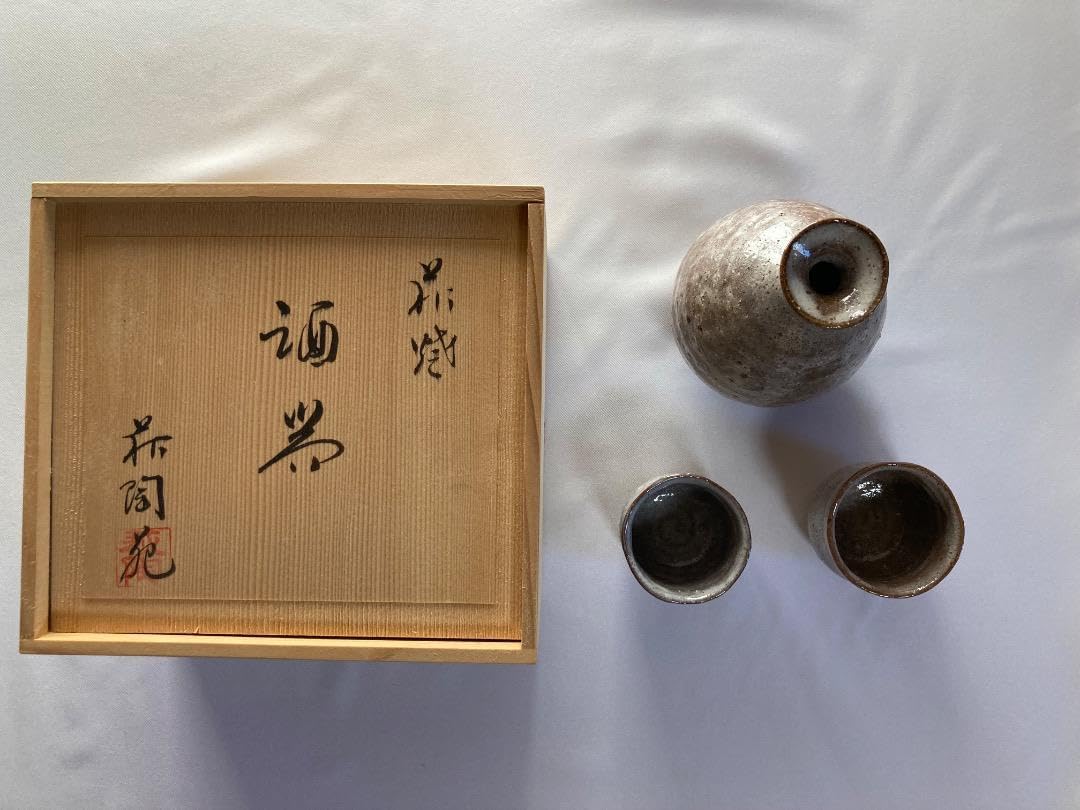 萩焼
酒器
萩陶苑